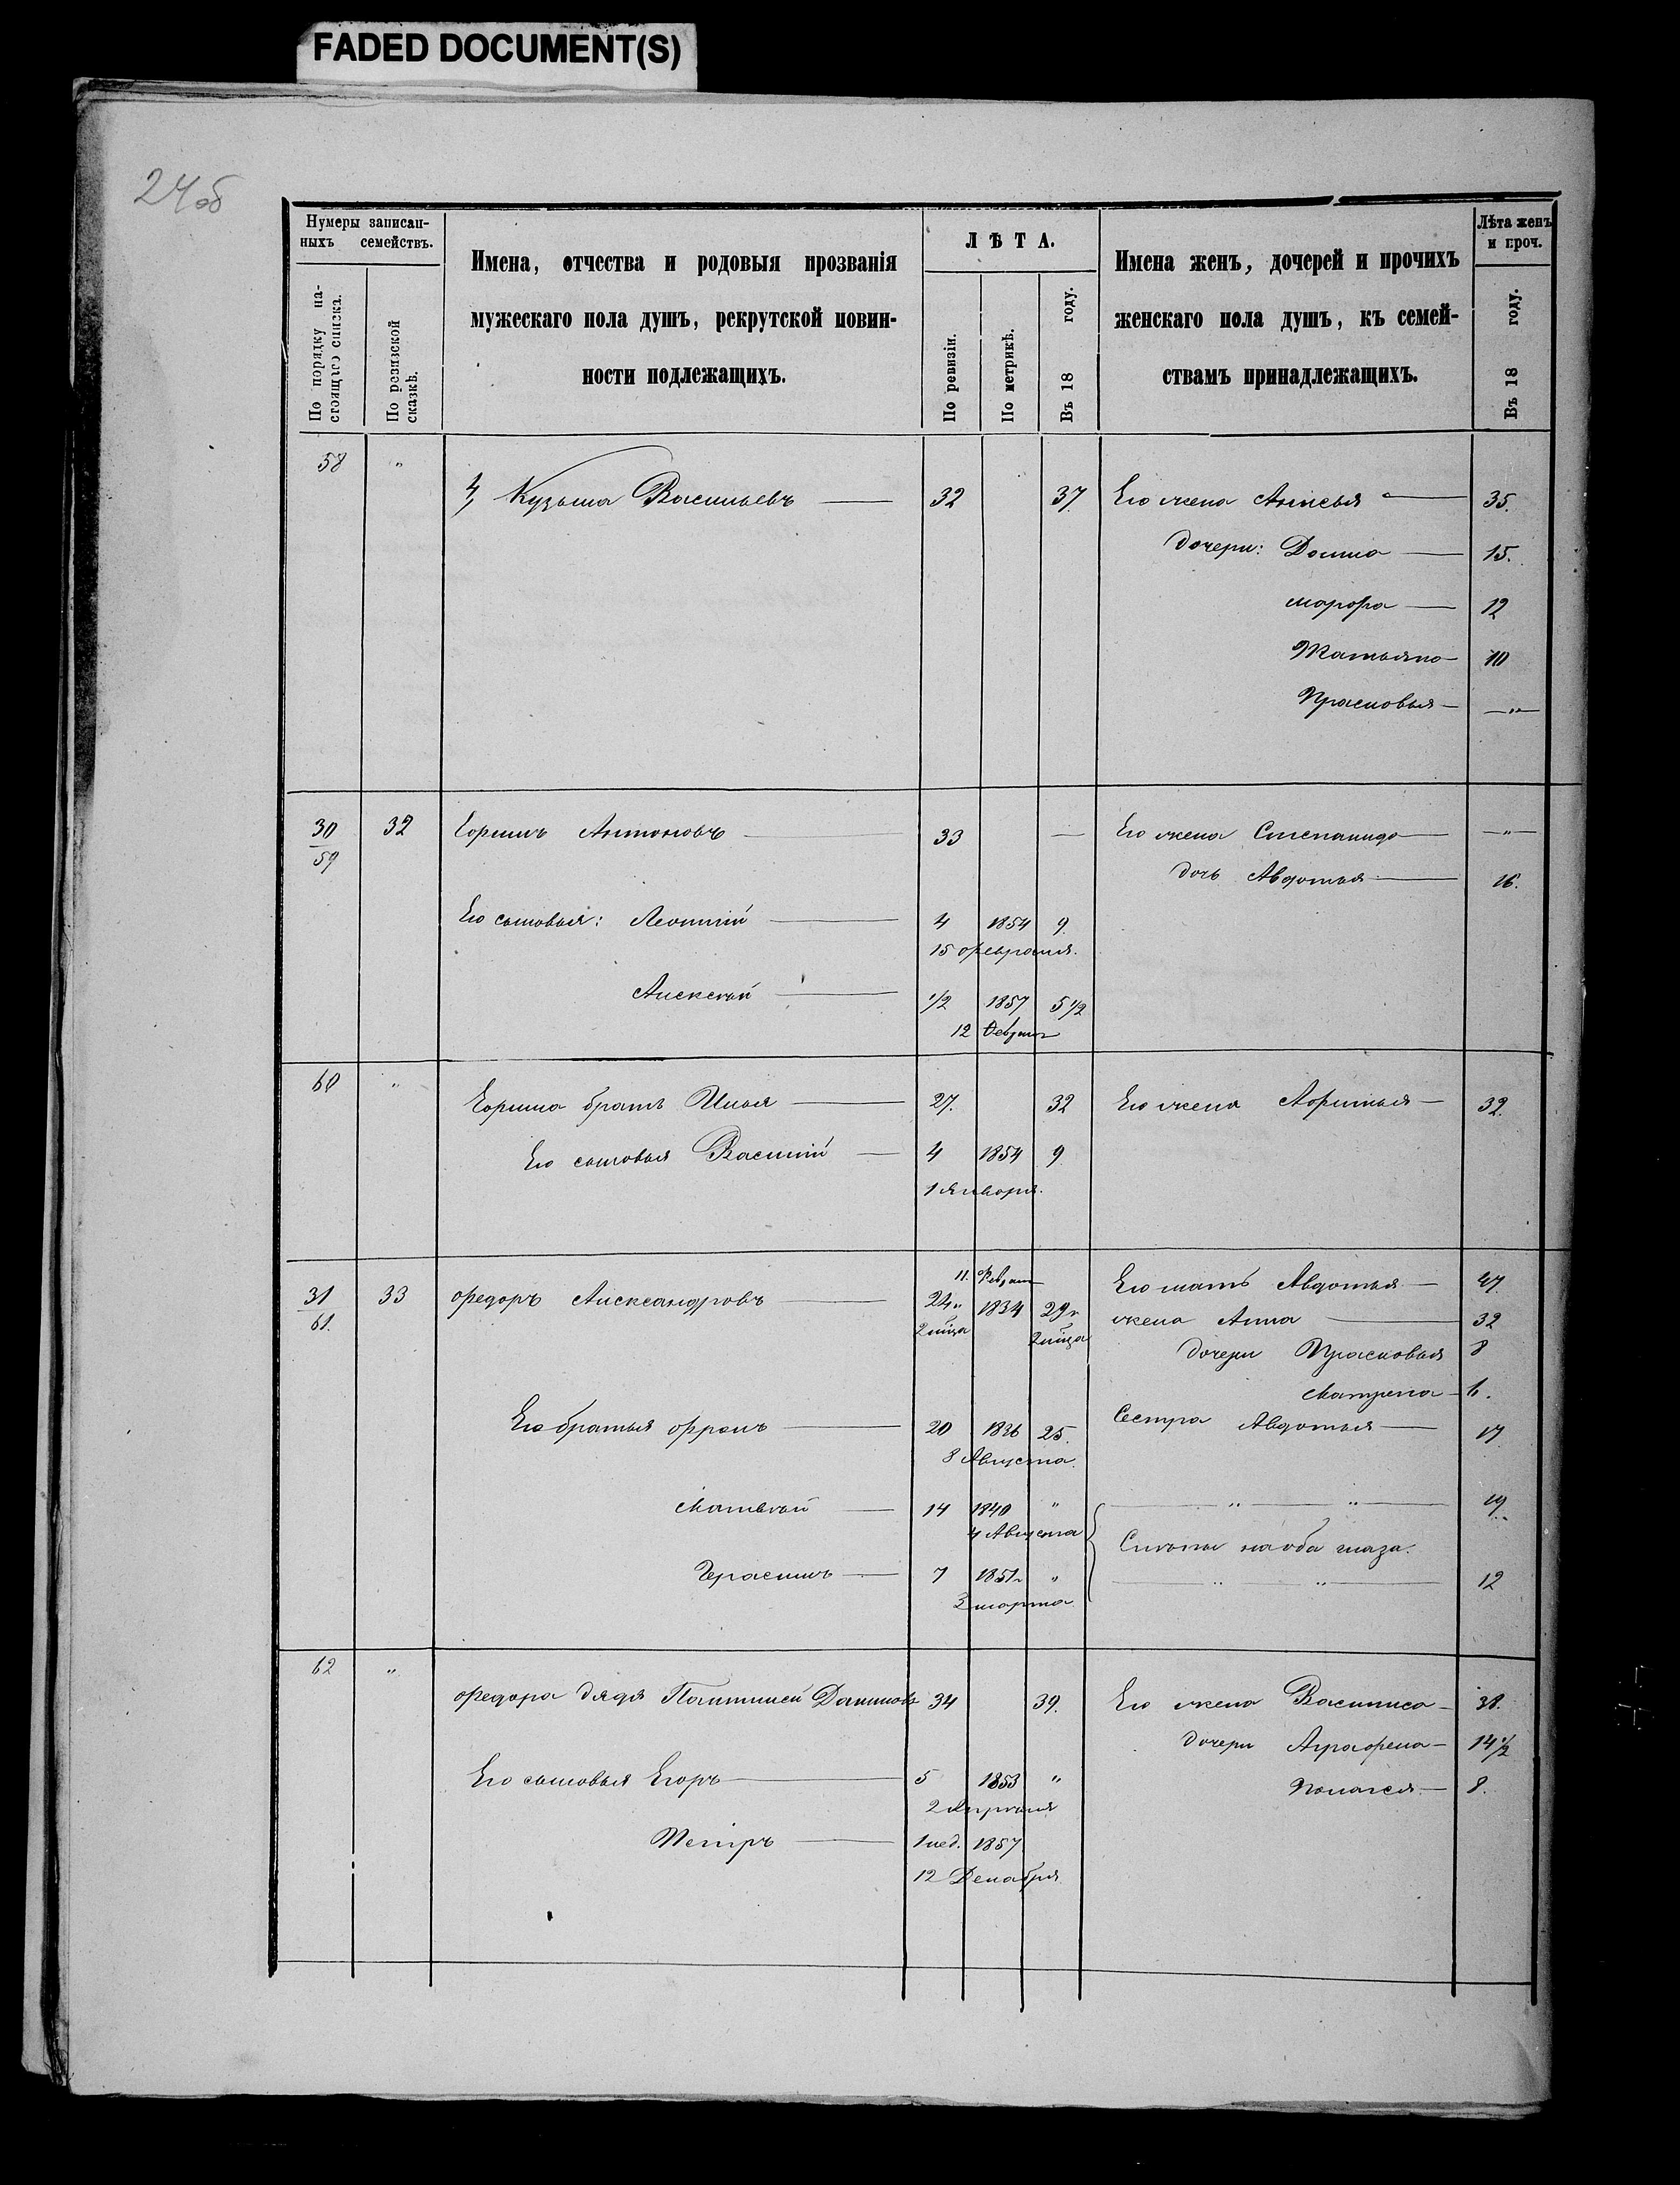 FADED DOCUMENT(S)
24об
Нумеры записан-
ныхъ семействъ.
По порядку на-
стоящаго списка.
По ревизской
сказкѣ.
Имена, отчества и родовыя прозванія
мужескаго пола душъ, рекрутской повин-
ности подлежащихъ.
ЛѢТА.
По ревизіи.
По метрикѣ.
Въ 18 году.
Имена женъ, дочерей и прочихъ
женскаго пола душъ, къ семей-
ствамъ принадлежащихъ.
Лѣта женъ
и проч.
Въ 18 году.
58 "
4, Кузьма Васильевъ — 32 37 Его жена Анисья — 35.
дочери: Домна — 15.
Марфа — 12
Татьяна — 10
Прасковья — —"—
30 32 Ефимъ Антоновъ — 33 — Его жена Степанида — —"—
59
дочь Авдотья — 16.
Его сыновья: Леонтій — 4 1854 9
15 февраля.
Алексѣй — 1/2 1857 5 1/2
12 Феврал
60 "
Ефима братъ Илья — 27. 32 Его жена Афимья — 32.
Его сыновья Василій — 4 1854 9
1 Января.
11. Феврал
31 33 Федоръ Александровъ — 24" 1834 29
61.
2 мца 2 мца
Его мать Авдотья — 47
жена Анна — 32
дочери Прасковья 8
Матрена — 6.
Его братья Фролъ — 20 1836 25. Сестра Авдотья — 17
8 Августа.
Матвѣй — 14 1840 " — " — " — 19
4 Августа
Слѣпы на оба глаза.
Герасимъ — 7 1851 " — " — " — 12
3 марта
62 "
Федора дядя Пантилей Даниловъ 34 39. Его жена Василиса — 38.
дочери Аграфена — 14 1/2
Его сыновья Егоръ — 5 1853 " Пелагея — 8.
2 Апрѣля
Петръ — 1 нед. 1857
12 Декабря